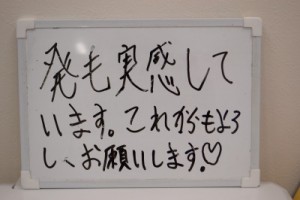 発も実感して
います。これからもよろ
し、お願いします。♡